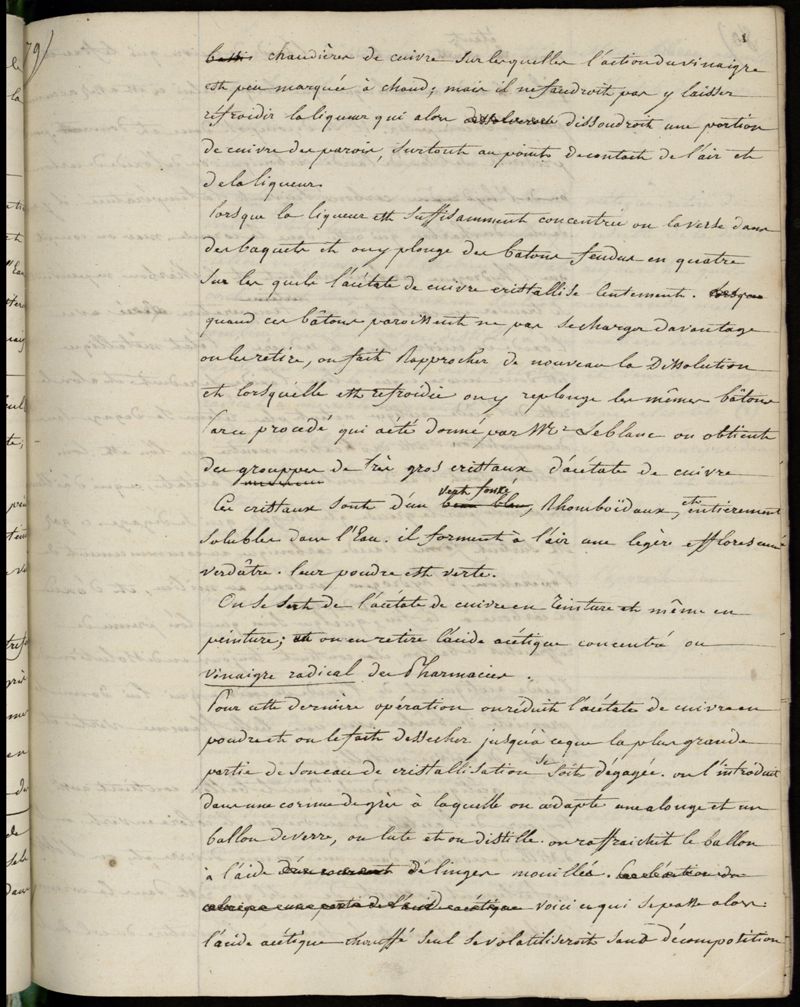 79)
1
chaudières de cuivre sur lesquelles l'action du vinaigre
est peu marquée à chaud; mais il ne faudroit pas y laisser
réfroidir la liqueur qui alors dissoudroit une portion
de cuivre des parois, surtout au point de contact de l'air et
de la liqueur.
Lorsque la liqueur est suffisamment concentrée on la verse dans
des baquets et on y plonge des batons fendus en quatre
sur les quels l'acétate de cuivre cristallise lentement. Lorsque
quand ces bâtons paroissent ne pas se charger davantage
on les retire, on fait Rapprocher de nouveau la Dissolution
et lorsqu'elle est refroidie on y replonge les mêmes bâtons
Par ce procedé qui a été donné par Mr Leblanc on obtient
des grouppes de très gros cristaux d'acétate de cuivre
Ces cristaux sont d'un beau bleu, vert foncé, Rhomboïdaux, et entièrement
solubles dans l'Eau. il forment à l'air une legère efflorescence
verdâtre. leur poudre est verte.
On se sert de l'acétate de cuivre en Teinture et même en
peinture; et on en retire l'acide acétique concentré ou
vinaigre radical des Pharmacies.
Pour cette dernière opération on réduit l'acétate de cuivre en
poudre et on le fait dessecher jusqu'à ce que la plus grande
partie de son eau de cristallisation se soit dégagée. on l'introduit
dans une cornue de grès à laquelle on adapte une alonge et un
ballon de verre, on lute et on distille. on raffraichit le ballon
à l'aide d'un courant de linges mouillés.
une partie de l'acide acétique voici ce qui se passe alors:
l'acide acétique chauffé seul se volatiliseroit sans décomposition